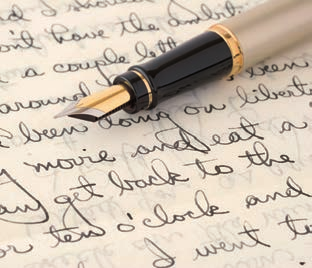 and I should
don't have the ambit
a couple lett
around been
been doing on liberty
movie and eat a
get back to the
or ten o'clock and
I went t